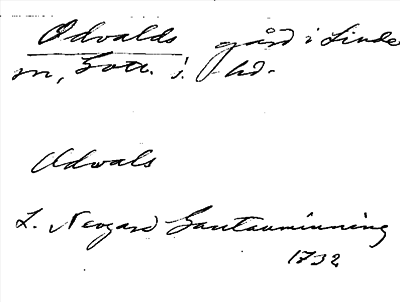 Odvalds gård i Linde
sn, Gotl. s. hd.
Udvals
L. Neogard Gautauminning
1732